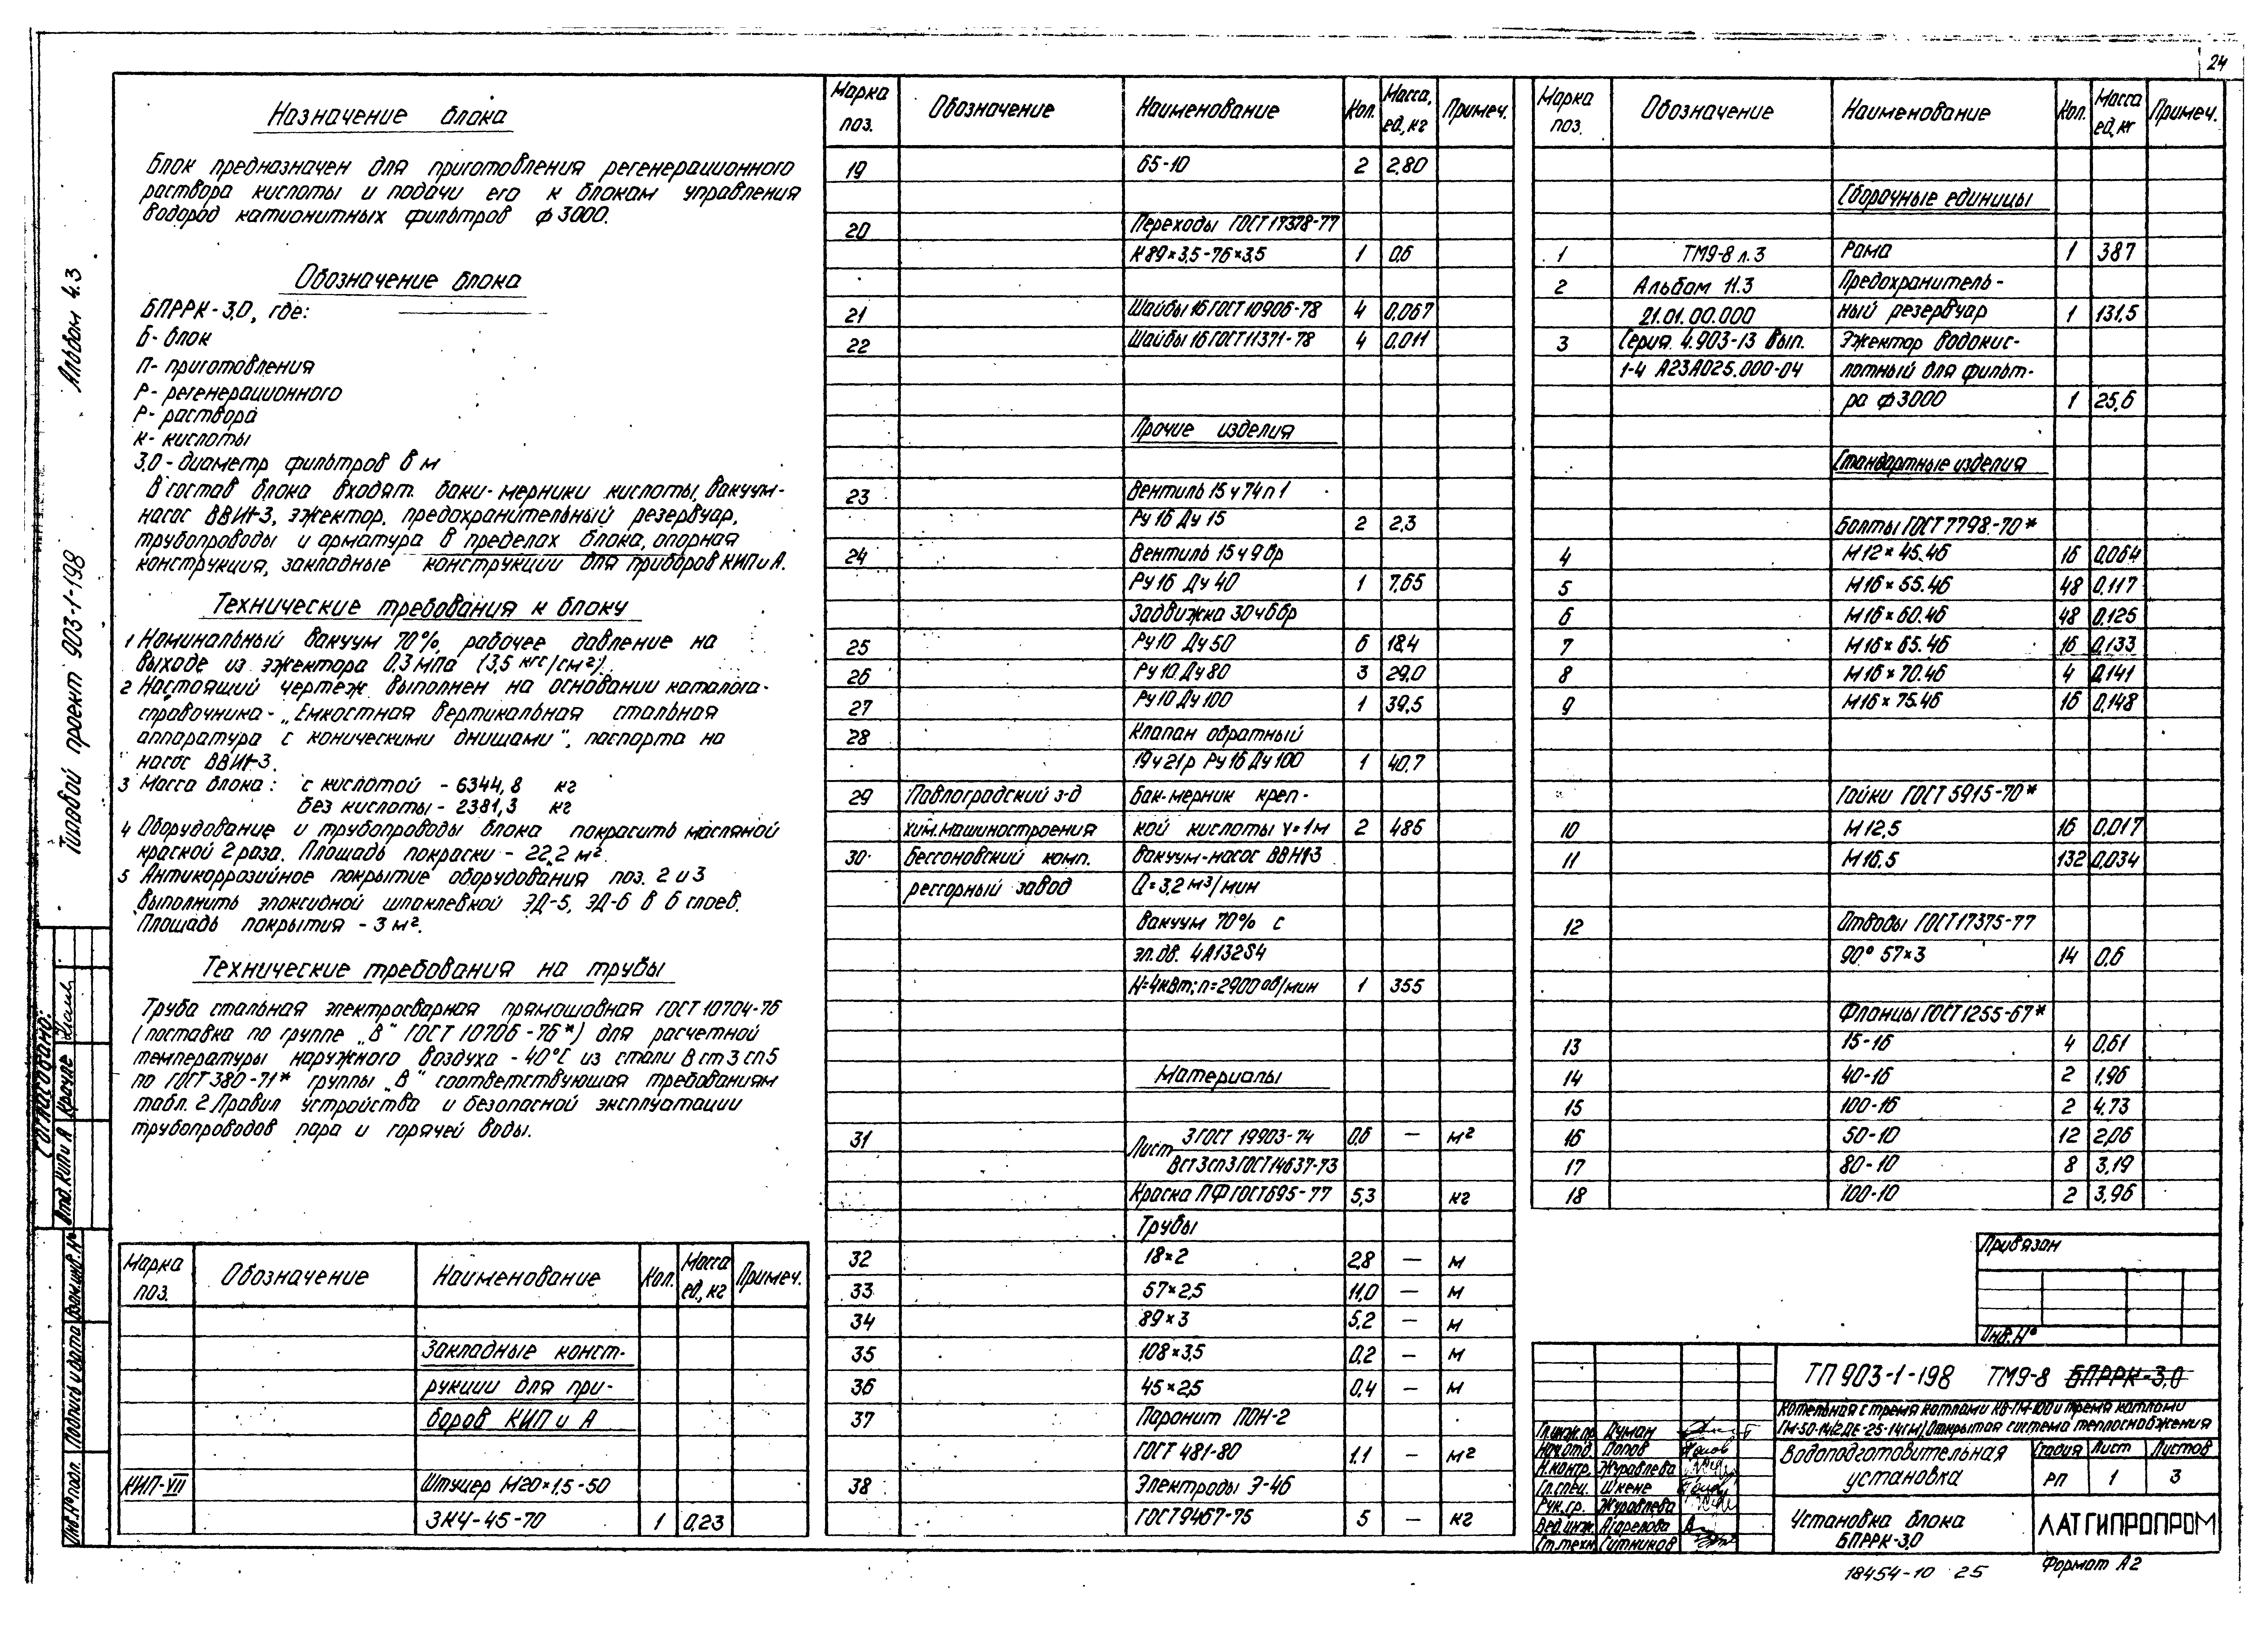 24
Назначение блока
Блок предназначен для приготовления регенерационного
раствора кислоты и подачи его к блокам управления
водород катионитных фильтров ф3000.
Обозначение блока
БПРРК-3,0, где:
Б- блок
П- приготовления
Р- регенерационного
Р- раствора
К- кислоты
3,0 - диаметр фильтров в м
В состав блока входят баки-мерники кислоты, вакуум-
насос ВВН1-3, эжектор, предохранительный резервуар,
трубопроводы и арматура в пределах блока, опорная
конструкция, закладные конструкции для приборов КИП и А.
Технические требования к блоку
1 Номинальный вакуум 70%, рабочее давление на
выходе из эжектора 0,3 МПа (3,5 кгс/см²).
2 Настоящий чертеж выполнен на основании каталога-
справочника - „Емкостная вертикальная стальная
аппаратура с коническими днищами", паспорта на
насос ВВН1-3.
3 Масса блока: с кислотой - 6344,8 кг
без кислоты - 2381,3 кг
4 Оборудование и трубопроводы блока покрасить масляной
краской 2 раза. Площадь покраски - 22,2 м².
5 Антикоррозийное покрытие оборудования поз. 2 и 3
выполнить эпоксидной шпаклевкой ЭД-5, ЭД-6 в 6 слоев.
Площадь покрытия - 3 м².
Технические требования на трубы
Труба стальная электросварная прямошовная ГОСТ 10704-76
(поставка по группе „В" ГОСТ 10706-76*) для расчетной
температуры наружного воздуха -40°С из стали В ст 3 сп5
по ГОСТ 380-71* группы „В" соответствующая требованиям
табл. 2 Правил устройства и безопасной эксплуатации
трубопроводов пара и горячей воды.
Марка поз. Обозначение Наименование Кол. Масса ед., кг Примеч.
Закладные конст-
рукции для при-
боров КИП и А
КИП-VII Штуцер М20×1,5-50
ЗК4-45-70 1 0,23
Марка поз. Обозначение Наименование Кол. Масса, ед., кг Примеч.
19 65-10 2 2,80
20 Переходы ГОСТ 17378-77
К 89×3,5-76×3,5 1 0,6
21 Шайбы 16 ГОСТ 10906-78 4 0,067
22 Шайбы 16 ГОСТ 11371-78 4 0,011
Прочие изделия
23 Вентиль 15ч74п1
Ру 16 Ду 15 2 2,3
24 Вентиль 15ч9бр
Ру 16 Ду 40 1 7,65
Задвижка 30ч6бр
25 Ру 10 Ду 50 6 18,4
26 Ру 10 Ду 80 3 29,0
27 Ру 10 Ду 100 1 39,5
28 Клапан обратный
19ч21р Ру 16 Ду 100 1 40,7
29 Павлоградский з-д Бак-мерник креп-
хим. машиностроения кой кислоты V=1м 2 485
30 Бессоновский комп. Вакуум-насос ВВН1-3
рессорный завод Q=3,2 м³/мин
вакуум 70% с
эл.дв. 4А132S4
N=4кВт; n=2900 об/мин 1 355
Материалы
31 Лист 3 ГОСТ 19903-74 0,6 — м²
Вст3сп3 ГОСТ 14637-73
Краска ПФ ГОСТ 695-77 5,3 кг
Трубы
32 18×2 2,8 — м
33 57×2,5 11,0 — м
34 89×3 5,2 — м
35 108×3,5 0,2 — м
36 45×2,5 0,4 — м
37 Паронит ПОН-2
ГОСТ 481-80 1,1 — м²
38 Электроды Э-46
ГОСТ 9467-75 5 — кг
Марка поз. Обозначение Наименование Кол. Масса ед, кг Примеч.
Сборочные единицы
1 ТМ9-8 л.3 Рама 1 387
2 Альбом 11.3 Предохранитель-
21.01.00.000 ный резервуар 1 131,5
3 Серия 4.903-13 вып. Эжектор водокис-
1-4 А23А025.000-04 лотный для фильт-
ра ф3000 1 25,6
Стандартные изделия
Болты ГОСТ 7798-70*
4 М12×45.46 16 0,064
5 М16×55.46 48 0,117
6 М16×60.46 48 0,125
7 М16×65.46 16 0,133
8 М16×70.46 4 0,141
9 М16×75.46 16 0,148
Гайки ГОСТ 5915-70*
10 М12,5 16 0,017
11 М16,5 132 0,034
12 Отводы ГОСТ 17375-77
90° 57×3 14 0,6
Фланцы ГОСТ 1255-67*
13 15-16 4 0,61
14 40-16 2 1,96
15 100-16 2 4,73
16 50-10 12 2,06
17 80-10 8 3,19
18 100-10 2 3,96
Привязан
Инв.№
ТП 903-1-198 ТМ9-8 БПРРК-3,0
Котельная с тремя котлами КВ-ГМ-100 и тремя котлами
ГМ-50-14(2ДЕ-25-14ГМ) Открытая система теплоснабжения
Гл.инж.пр. Думан
Нач.отд. Попов
Н.контр. Журавлева
Гл.спец. Шкене
Рук.гр. Журавлева
Вед.инж.
Ст.техн. Ситников
Водоподготовительная установка
Стадия Лист Листов
РП 1 3
Установка блока
БПРРК-3,0
ЛАТГИПРОПРОМ
18454-10 25
Формат А2
Альбом 4.3
Типовой проект 903-1-198
Согласовано:
Отд. КИП и А Крауле
Инв.№ подл. Подпись и дата Взам.инв.№